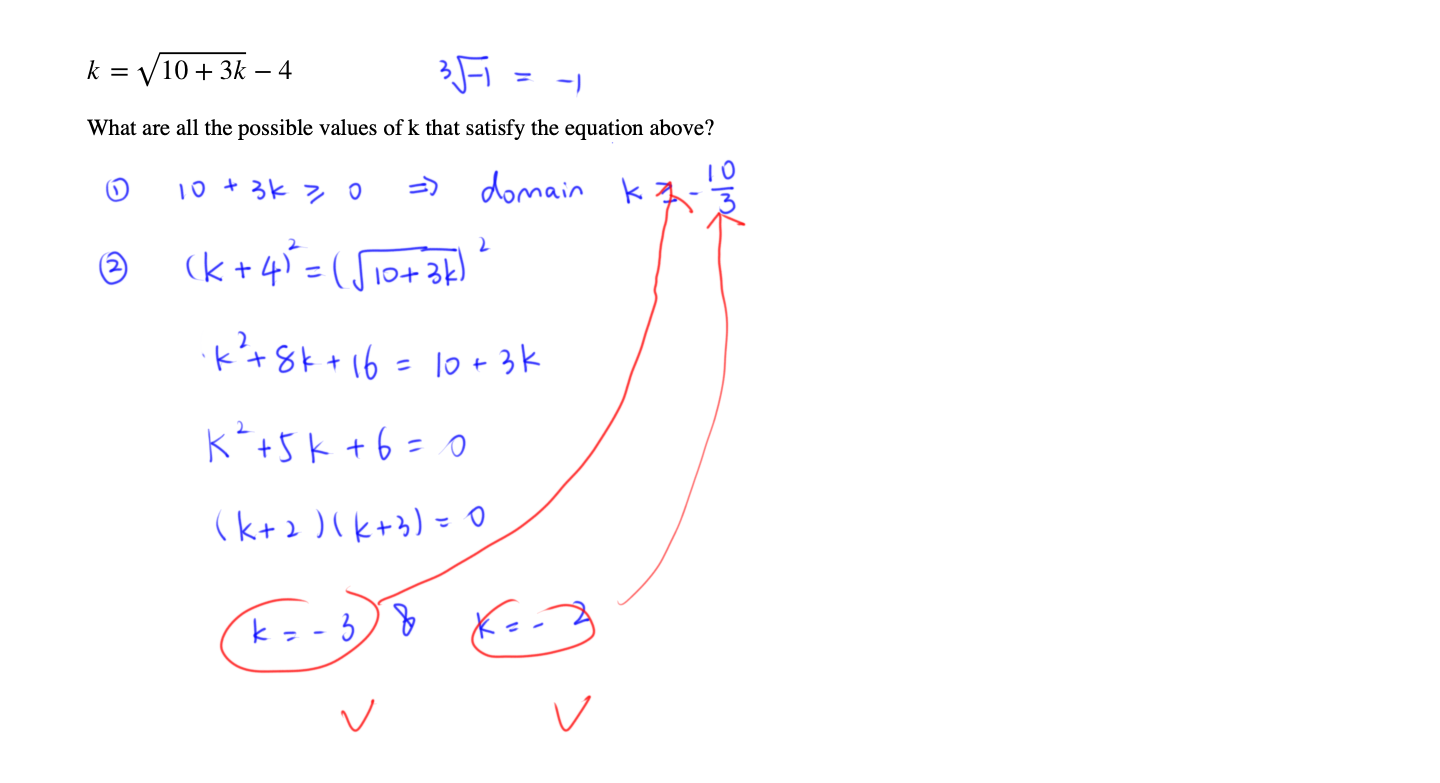 k = √(10 + 3k) − 4
³√−1 = −1
What are all the possible values of k that satisfy the equation above?
① 10 + 3k ⩾ 0 ⇒ domain k ⩾ −10/3
② (k + 4)² = (√(10 + 3k))²
k² + 8k + 16 = 10 + 3k
k² + 5k + 6 = 0
(k + 2)(k + 3) = 0
k = −3 & k = −2
✓ ✓